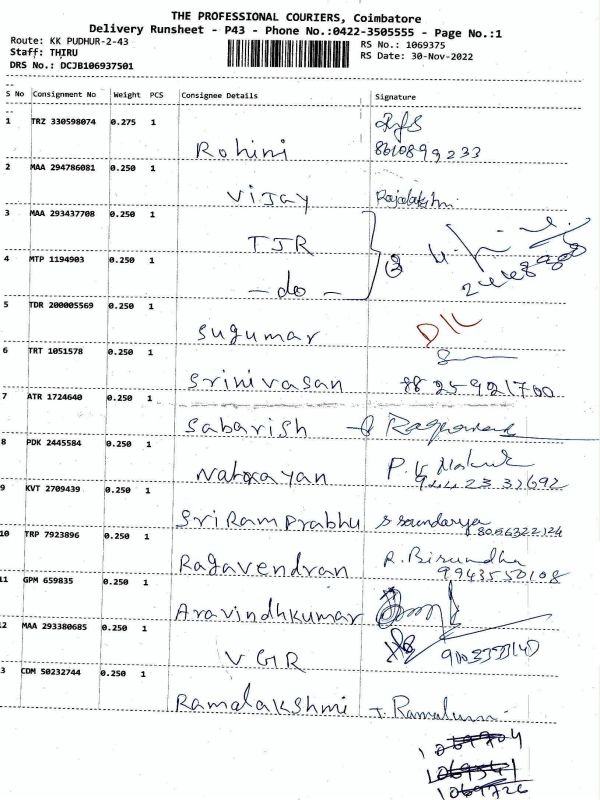 THE PROFESSIONAL COURIERS, Coimbatore
Delivery Runsheet - P43 - Phone No.:0422-3505555 - Page No.:1
Route: KK PUDHUR-2-43
RS No.: 1069375
Staff: THIRU
RS Date: 30-Nov-2022
DRS No.: DCJB106937501
S No Consignment No Weight PCS Consignee Details Signature
1 TRZ 330598074 0.275 1
Rohini 8610899233
2 MAA 294786081 0.250 1
Vijay Rajalakshmi
3 MAA 293437708 0.250 1
TJR
4 MTP 1194903 0.250 1
- do -
5 TDR 200005569 0.250 1
Sugumar
6 TRT 1051578 0.250 1
Srinivasan 8825921700
7 ATR 1724640 0.250 1
Sabarish
8 PDK 2445584 0.250 1
9 KVT 2709439 0.250 1
Sri Ram Prabhu S Soundarya
10 TRP 7923896 0.250 1
Ragavendran R. Birundha
9943550108
11 GPM 659835 0.250 1
Aravindhkumar
12 MAA 293380685 0.250 1
VGR
3 CDM 50232744 0.250 1
Ramalakshmi